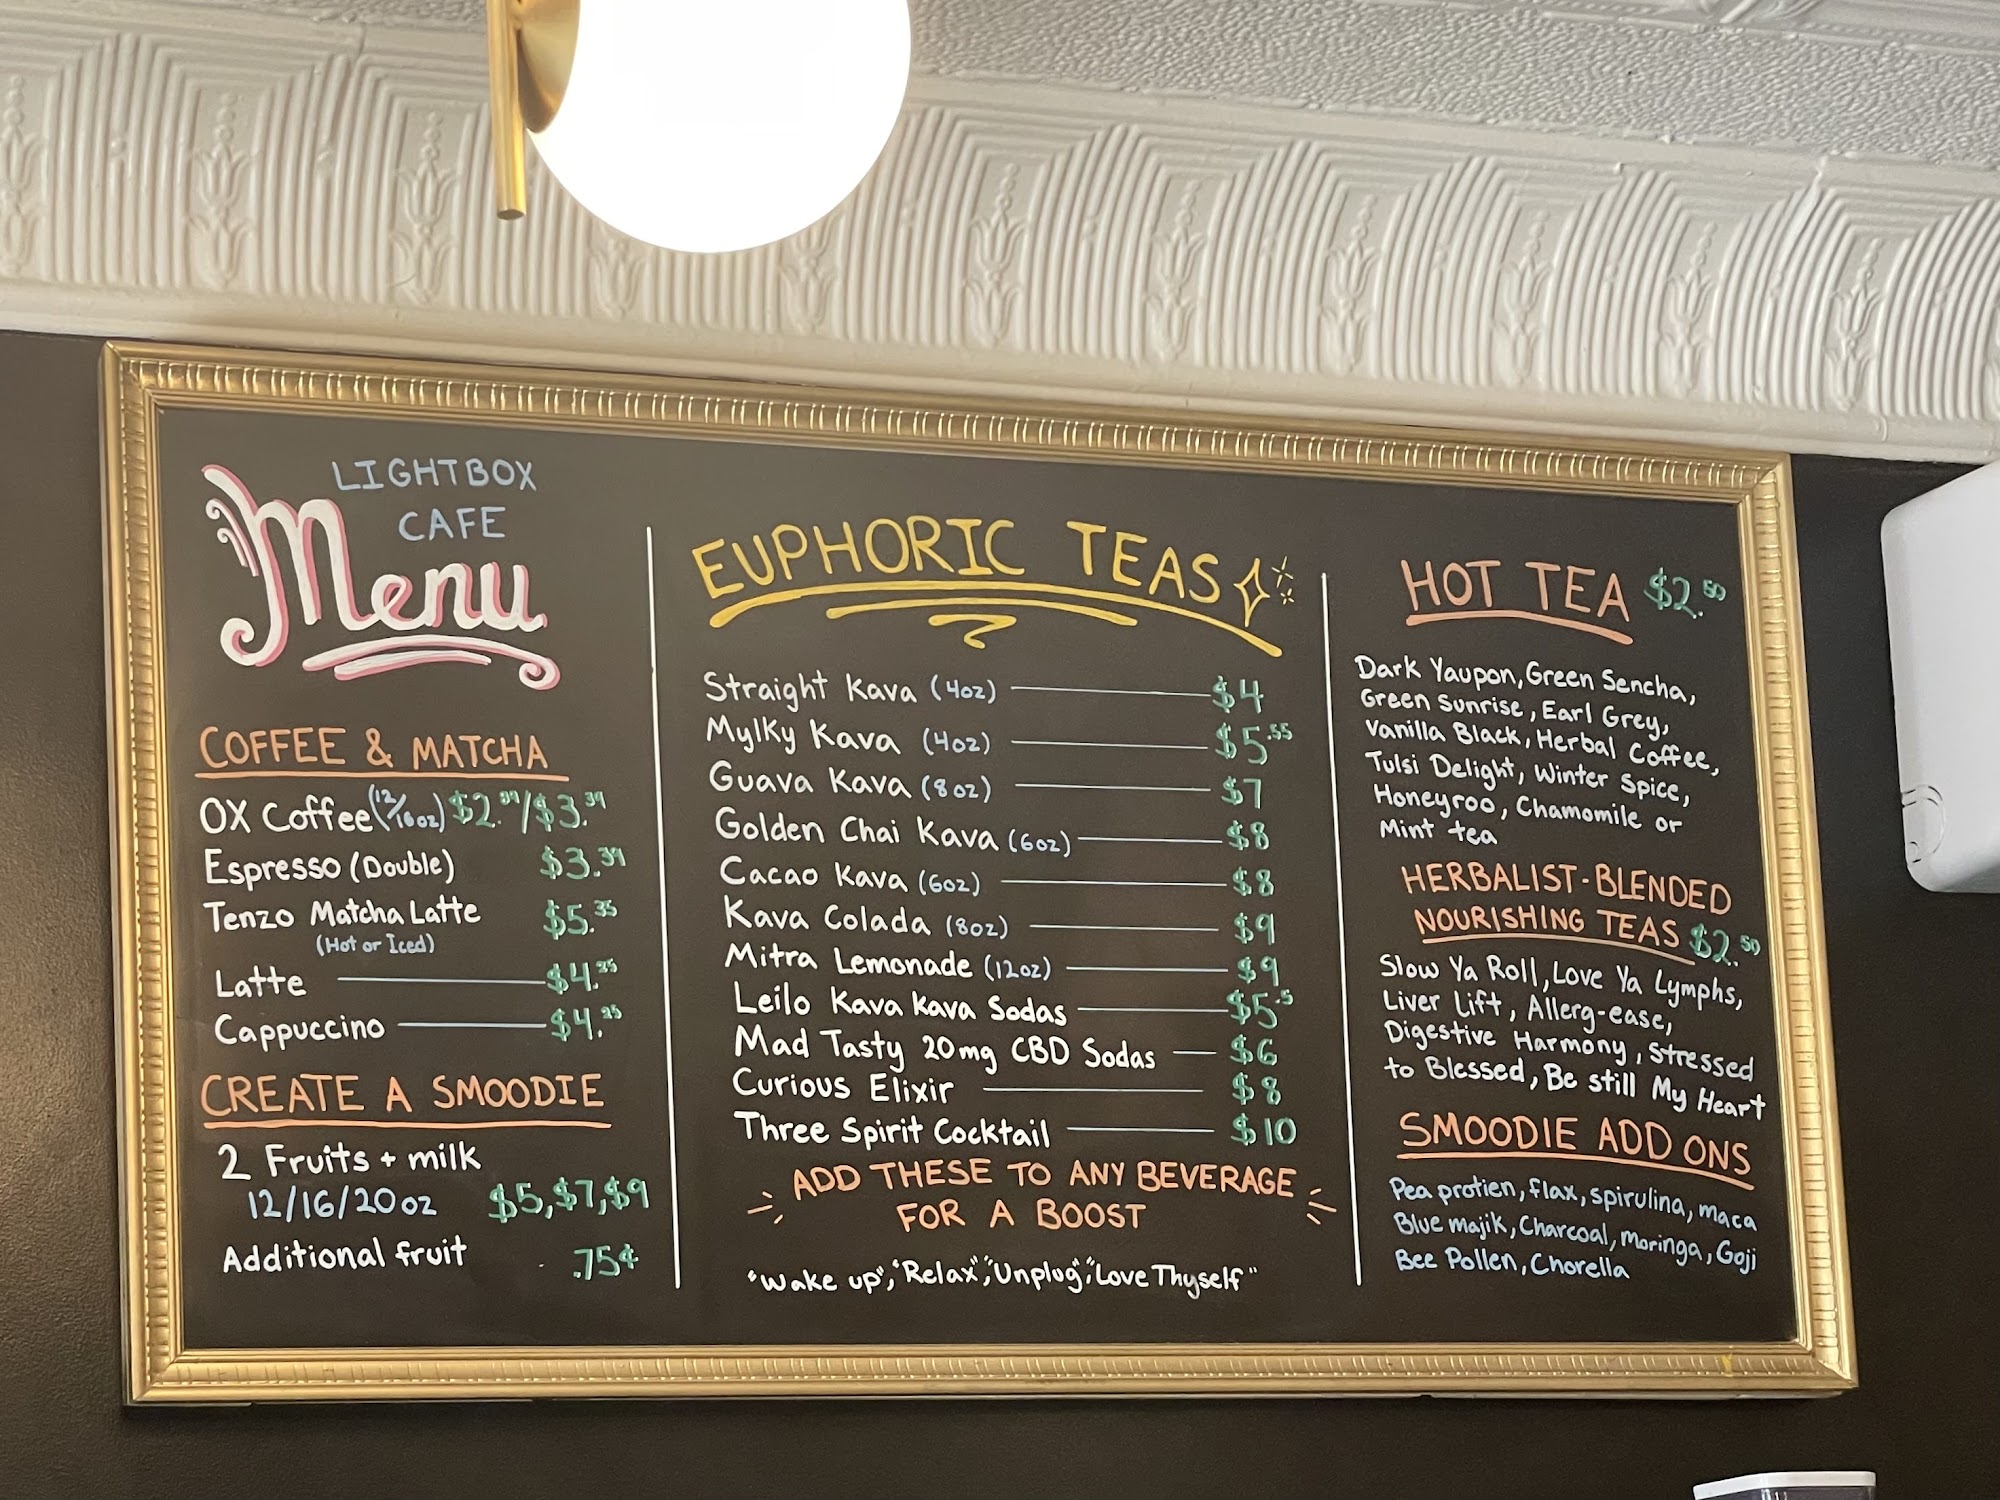 LIGHTBOX
CAFE
Menu
COFFEE & MATCHA
OX Coffee (12/16oz) $2.39/$3.39
Espresso (Double) $3.39
Tenzo Matcha Latte $5.35
(Hot or Iced)
Latte $4.25
Cappuccino $4.25
CREATE A SMOODIE
2 Fruits + milk
12/16/20oz $5,$7,$9
Additional fruit .75¢
EUPHORIC TEAS
Straight Kava (4oz) $4
Mylky Kava (4oz) $5.55
Guava Kava (8oz) $7
Golden Chai Kava (6oz) $8
Cacao Kava (6oz) $8
Kava Colada (8oz) $9
Mitra Lemonade (12oz) $9
Leilo Kava Kava Sodas $5.5
Mad Tasty 20mg CBD Sodas $6
Curious Elixir $8
Three Spirit Cocktail $10
ADD THESE TO ANY BEVERAGE
FOR A BOOST
"Wake up", "Relax", "Unplug", "Love Thyself"
HOT TEA $2.50
Dark Yaupon, Green Sencha,
Green Sunrise, Earl Grey,
Vanilla Black, Herbal Coffee,
Tulsi Delight, Winter Spice,
Honeyroo, Chamomile or
Mint tea
HERBALIST-BLENDED
NOURISHING TEAS $2.50
Slow Ya Roll, Love Ya Lymphs,
Liver Lift, Allerg-ease,
Digestive Harmony, Stressed
to Blessed, Be Still My Heart
SMOODIE ADD ONS
Pea protien, flax, spirulina, maca
Blue majik, Charcoal, moringa, Goji
Bee Pollen, Chorella